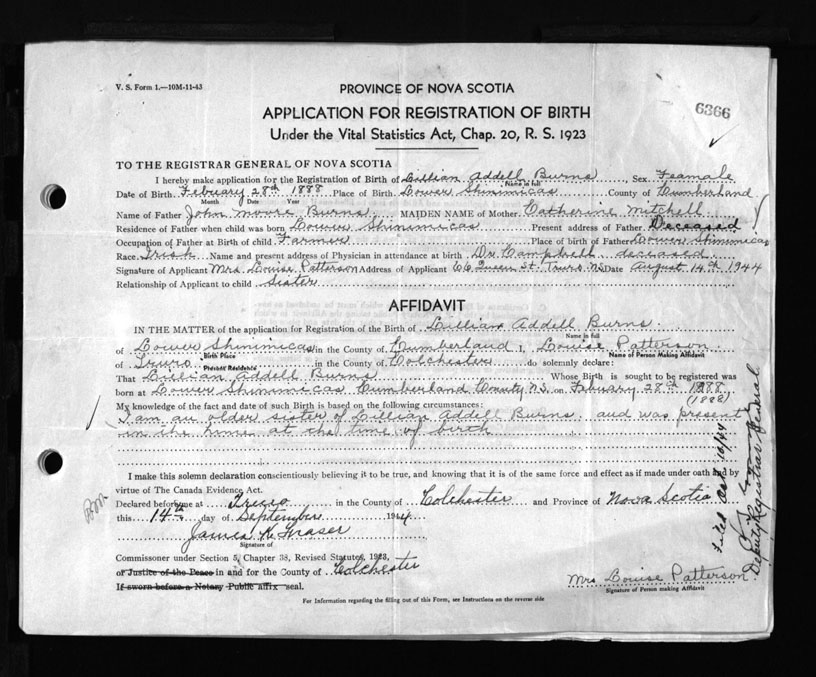 V. S. Form 1.—10M-11-43
PROVINCE OF NOVA SCOTIA
6366
APPLICATION FOR REGISTRATION OF BIRTH
Under the Vital Statistics Act, Chap. 20, R. S. 1923
TO THE REGISTRAR GENERAL OF NOVA SCOTIA
I hereby make application for the Registration of Birth of Lillian Addell Burns Sex Feamale
Name in full
Date of Birth Febuary 28th 1888 Place of Birth Lower Shinimicas County of Cumberland
Month Day Year
Name of Father John Moore Burns MAIDEN NAME of Mother Catherine Mitchell
Residence of Father when child was born Lower Shinimicas Present address of Father Deceased
Occupation of Father at Birth of child Farmer Place of birth of Father Lower Shinimicas
Race Irish Name and present address of Physician in attendance at birth Dr Campbell deceased
Signature of Applicant Mrs Louise Patterson Address of Applicant Queen St. Truro NS Date August 14th 1944
Relationship of Applicant to child Sister
AFFIDAVIT
IN THE MATTER of the application for Registration of the Birth of Lillian Addell Burns
Name in full
of Lower Shinimicas in the County of Cumberland I, Louise Patterson
Birth Place Name of Person Making Affidavit
of Truro in the County of Colchester do solemnly declare:
Present Residence
That Lillian Addell Burns Whose Birth is sought to be registered was
born at Lower Shinimicas Cumberland County N.S. on Febuary 28th 1888
(1888)
My knowledge of the fact and date of such Birth is based on the following circumstances:
I am an older sister of Lillian Addell Burns. and was present
in the home at the time of birth
I make this solemn declaration conscientiously believing it to be true, and knowing that it is of the same force and effect as if made under oath by
virtue of The Canada Evidence Act.
Declared before me at Truro in the County of Colchester and Province of Nova Scotia
this 14th day of September 1944
James K Fraser
Signature of
Commissioner under Section 5, Chapter 38, Revised Statutes, 1923,
or Justice of the Peace in and for the County of Colchester
If sworn before a Notary Public affix seal.
Mrs Louise Patterson
Signature of Person making Affidavit
For Information regarding the filling out of this Form, see Instructions on the reverse side
Filed Oct 10/44
Deputy Registrar General